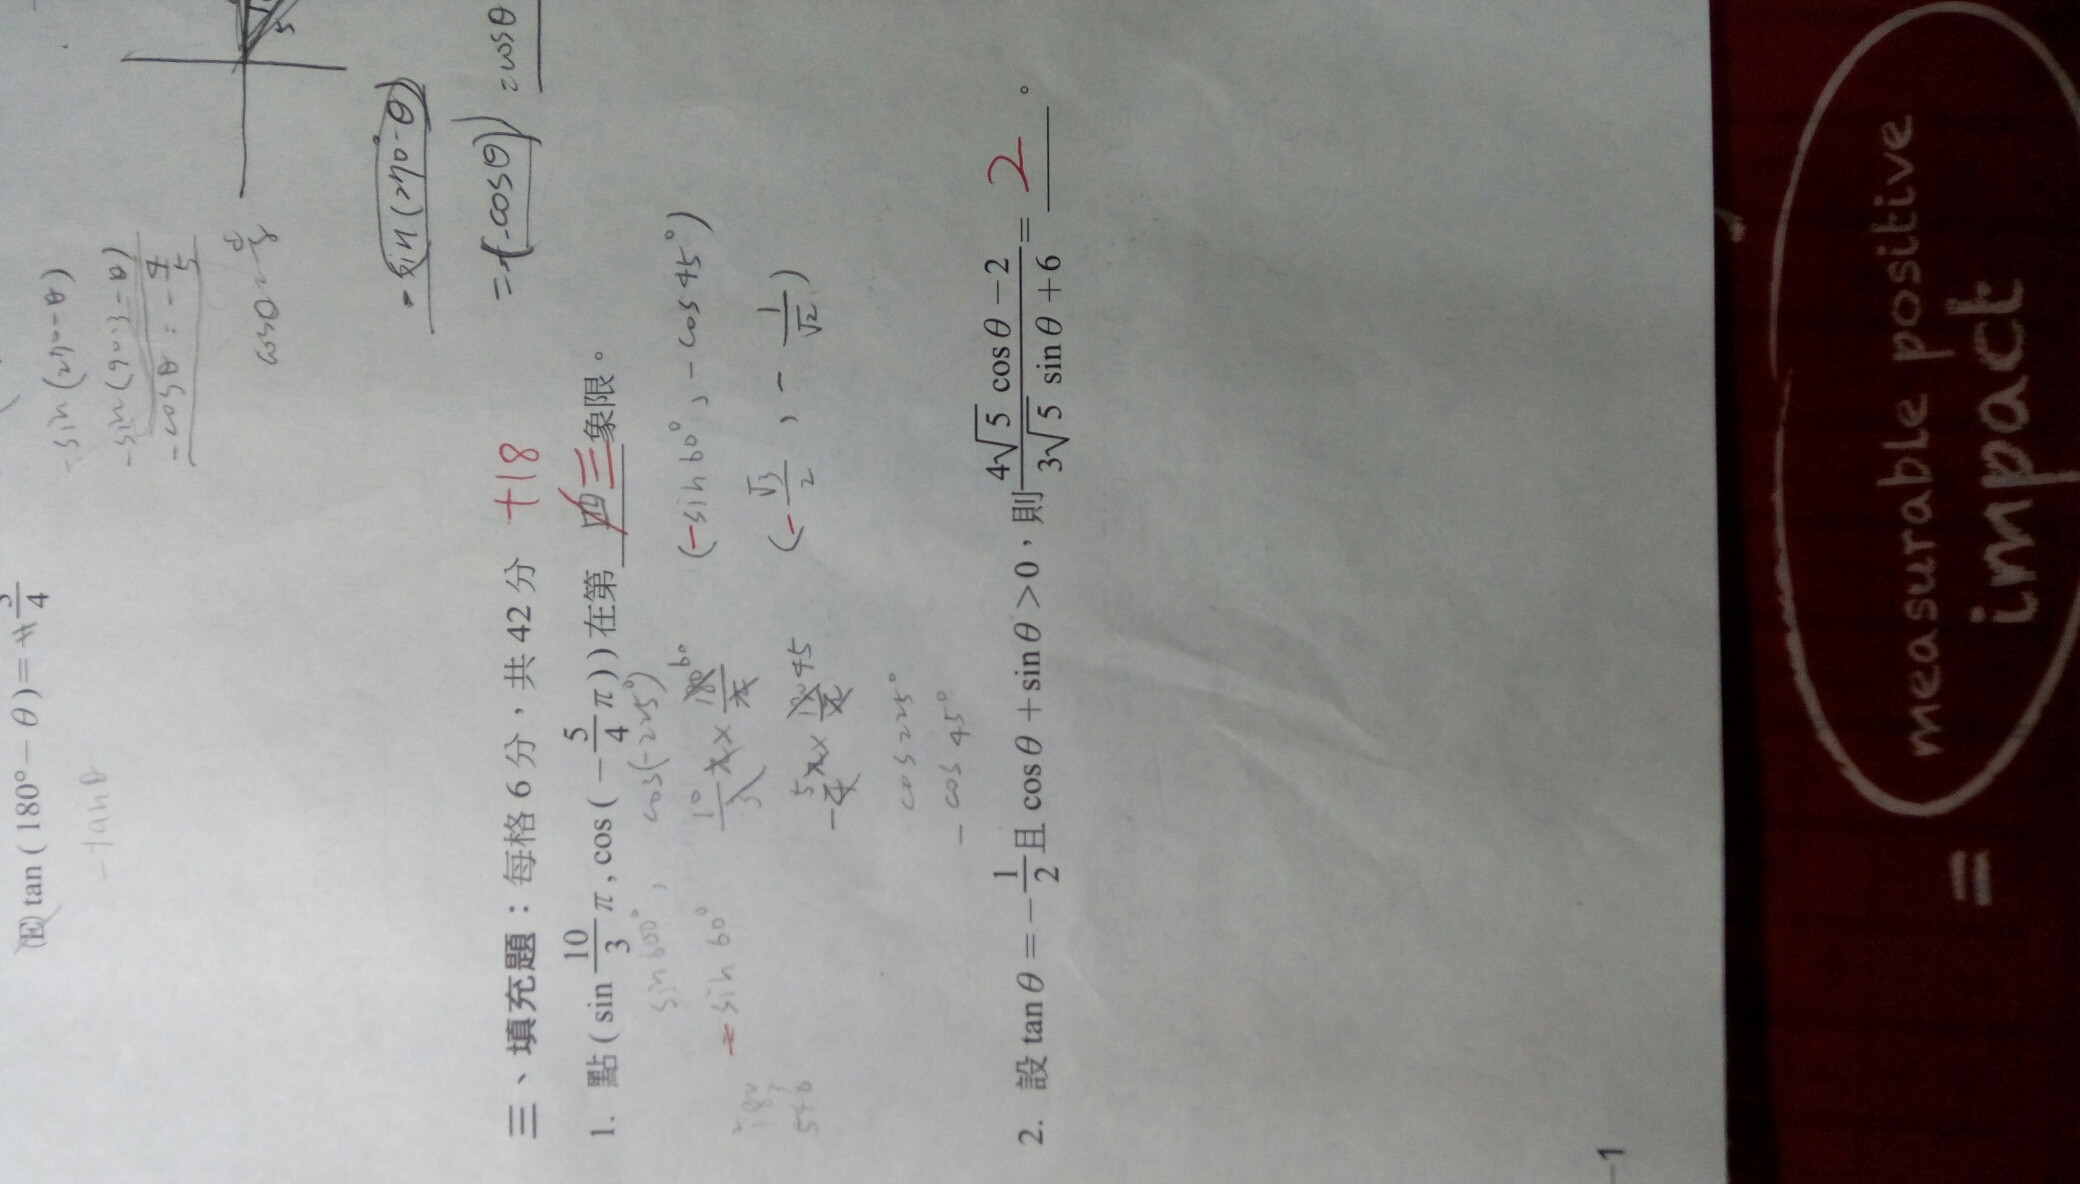 (E) tan ( 180° − θ ) = 3/4
−tanθ
−sin(270−θ)
−sin(90·3−θ)
−cosθ = −4/5
cosθ = 4/5
5
sin(270−θ)
=−(−cosθ) = cosθ
三、填充題：每格 6 分，共 42 分 +18
1. 點 ( sin 10/3 π , cos ( − 5/4 π ) ) 在第 四 三 象限。
sin600°, cos(−225°)
−sin60°
10/3 π × 180/π 60
−5/4 π × 180/π 45
cos225°
−cos45°
(−sin60°, −cos45°)
(−√3/2, −1/√2)
180
540
2. 設 tan θ = − 1/2 且 cos θ + sin θ > 0，則 (4√5 cos θ − 2)/(3√5 sin θ + 6) = 2 。
1
= measurable positive
impact